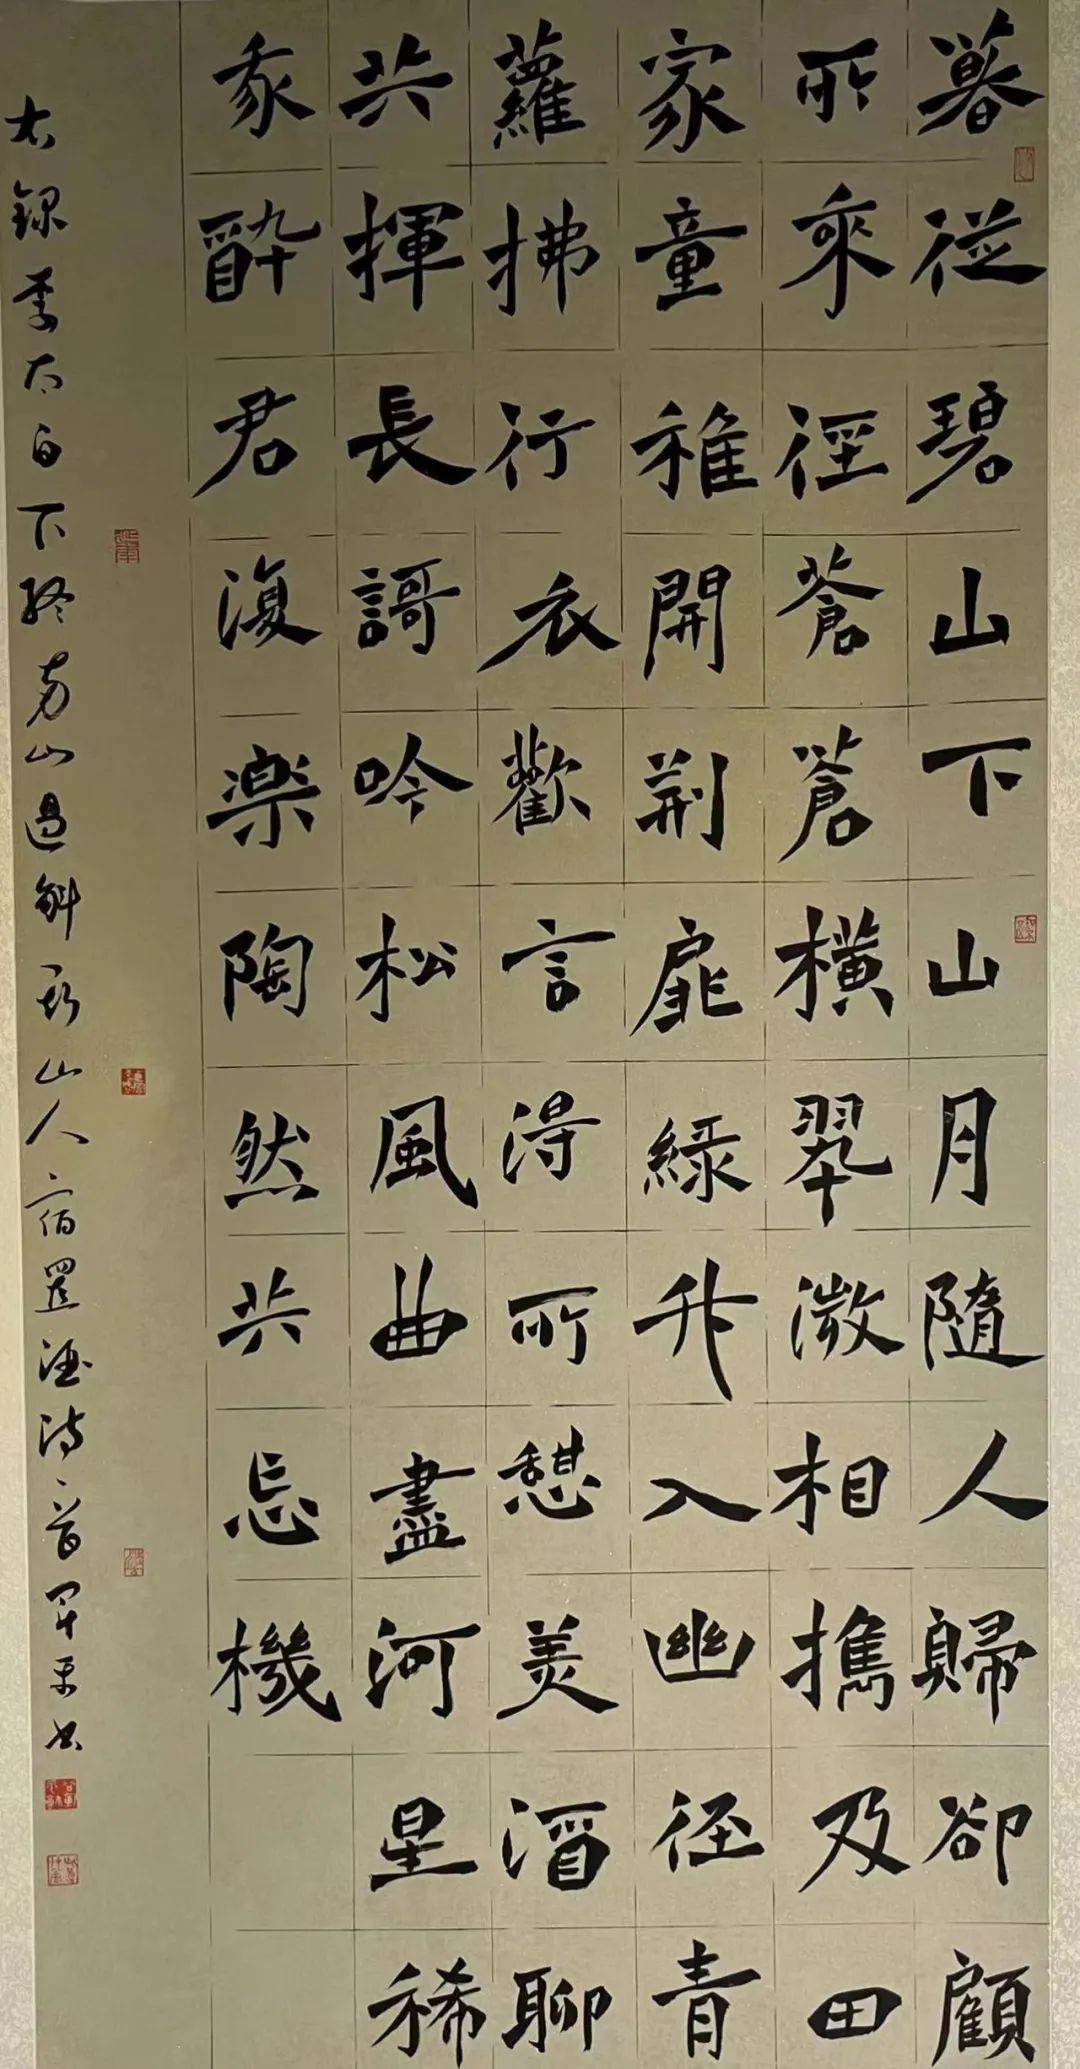 暮從碧山下山月隨人歸卻顧
所來徑蒼蒼橫翠微相攜及田
家童稚開荆扉綠竹入幽徑青
蘿拂行衣歡言得所憩美酒聊
共揮長歌吟松風曲盡河星稀
我醉君復樂陶然共忘機
右錄李太白下終南山過斛斯山人宿置酒詩一首軍平書